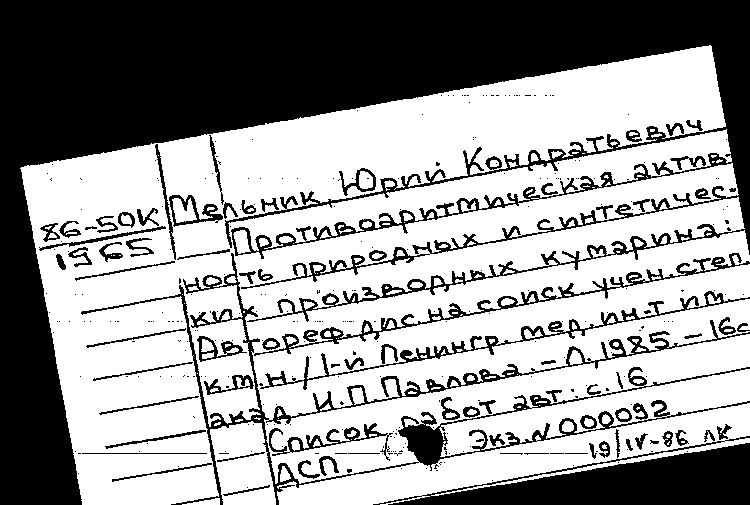 Мельник, Юрий Кондратьевич
86-50К
1965
Противоаритмическая актив-
ность природных и синтетичес-
ких производных кумарина:
Автореф. дис. на соиск. учен. степ.
к.м.н. / 1-й Ленингр. мед. ин-т им.
акад. И.П. Павлова. - Л., 1985. - 16с
Список работ авт.: с. 16.
ДСП. Экз. N 000092.
19/IV-86 ЛК